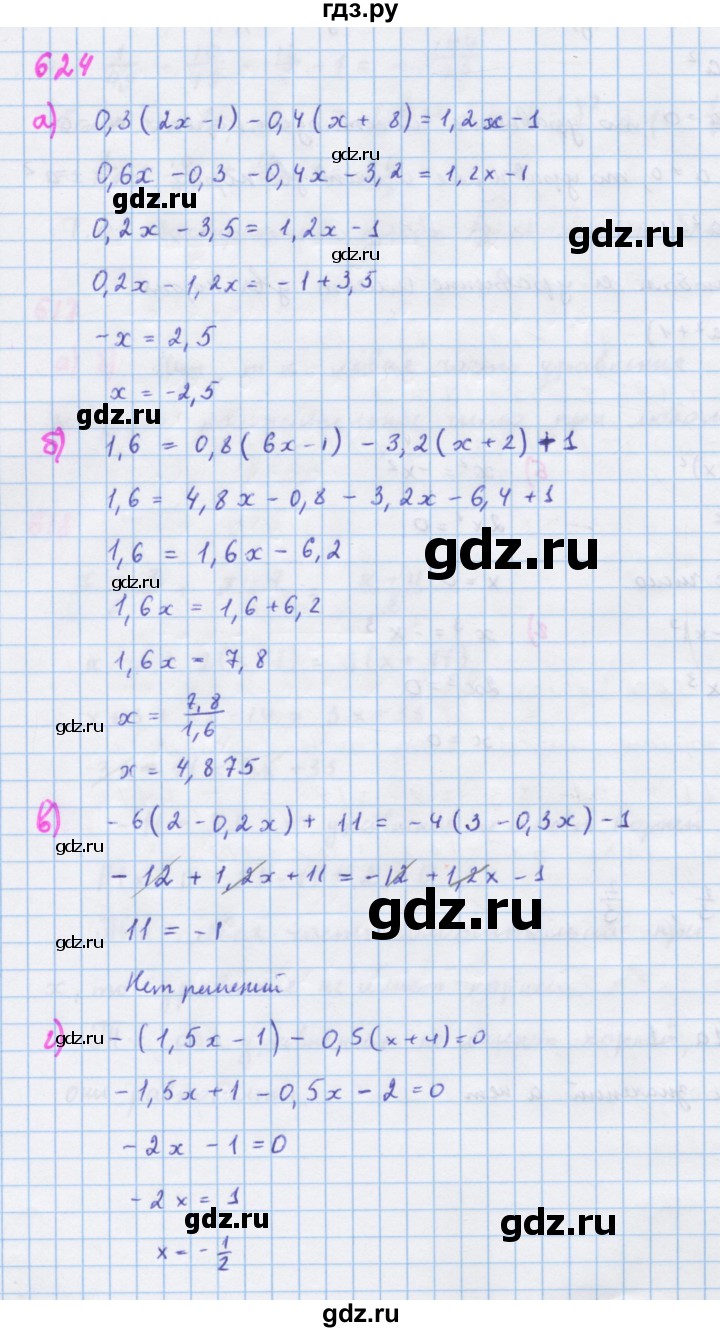 гдз.ру
624
а) 0,3(2x-1)-0,4(x+8)=1,2x-1
gdz.ru
0,6x-0,3-0,4x-3,2=1,2x-1
gdz.ru
0,2x-3,5=1,2x-1
gdz.ru
gdz.ru
0,2x-1,2x=-1+3,5
-x=2,5
x=-2,5
gdz.ru
б) 1,6=0,8(6x-1)-3,2(x+2)+1
1,6=4,8x-0,8-3,2x-6,4+1
gdz.ru
1,6=1,6x-6,2
gdz.ru
1,6x=1,6+6,2
1,6x=7,8
gdz.ru x=7,8/1,6
x=4,875
в) -6(2-0,2x)+11=-4(3-0,3x)-1
gdz.ru
-12+1,2x+11=-12+1,2x-1
gdz.ru
11=-1
gdz.ru
Нет решений
г) gdz.ru -(1,5x-1)-0,5(x+4)=0
-1,5x+1-0,5x-2=0
-2x-1=0
-2x=1
gdz.ru
gdz.ru
x=-1/2
gdz.ru